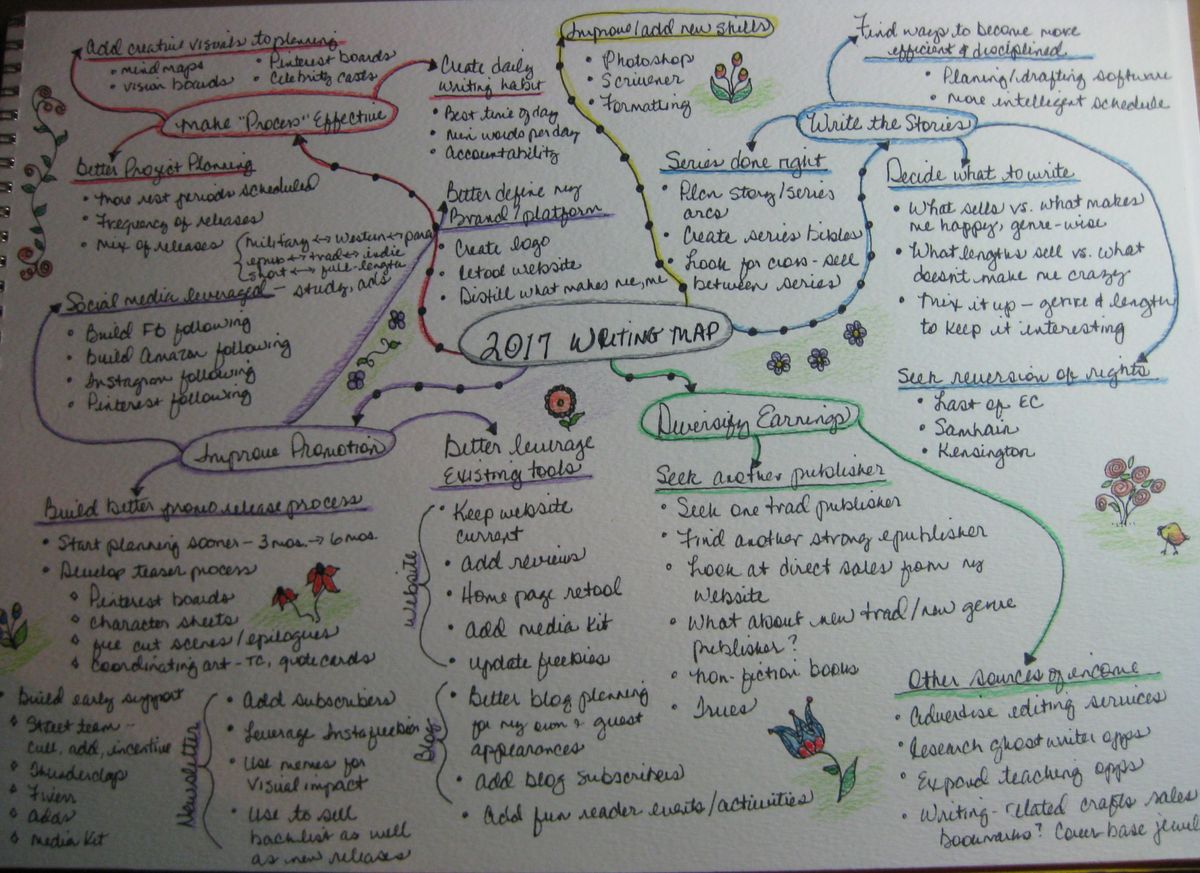 2017 WRITING MAP
Make "Process" Effective
Add creative visuals to planning
• mind maps
• vision boards
• Pinterest boards
• Celebrity casts
Create daily
writing habit
• Best time of day
• Min words per day
• Accountability
Better Project Planning
• More rest periods scheduled
• Frequency of releases
• Mix of releases
military ↔ western ↔ para
epub ↔ trad ↔ indie
short ↔ full-length
Improve/add new skills
• Photoshop
• Scrivener
• Formatting
Write the Stories
Find ways to become more
efficient & disciplined
• Planing/drafting software
• More intelligent schedule
Series done right
• Plan story/series
arcs
• Create series bibles
• Look for cross-sell
between series
Decide what to write
• What sells vs. what makes
me happy, genre-wise
• What lengths sell vs. what
doesn't make me crazy
• Mix it up - genre & length
to keep it interesting
Seek reversion of rights
• Last of EC
• Samhain
• Kensington
Improve Promotion
Better define my
Brand/platform
• Create logo
• Retool website
• Distill what makes me, me
Social media leveraged - study, ads
• Build FB following
• Build Amazon following
• Instagram following
• Pinterest following
Build better promo release process
• Start planning sooner - 3 mos. → 6 mos.
• Develop teaser process
Pinterest boards
character sheets
cut scenes/epilogues
coordinating art - TC, quote cards
Build early support
Street team -
cull, add, incentive
Thunderclap
Fiverr
ads
Media Kit
Better leverage
Existing tools
Website
• Keep website
current
• Add reviews
• Home page retool
• Add media kit
• Update freebies
Blog
• Better blog planning
for my own & guest
appearances
• Add blog subscribers
• Add fun reader events/activities
Newsletter
• Add subscribers
• Leverage Instafreebie
• Use memes for
visual impact
• Use to sell
backlist as well
as new releases
Diversify Earnings
Seek another publisher
• Seek one trad publisher
• Find another strong epublisher
• Look at direct sales from my
website
• What about new trad/new genre
publisher?
• Non-fiction books
• Trues
Other sources of income
• Advertise editing services
• Research ghostwriter opps
• Expand teaching opps
• Writing-related crafts sales
Bookmarks?